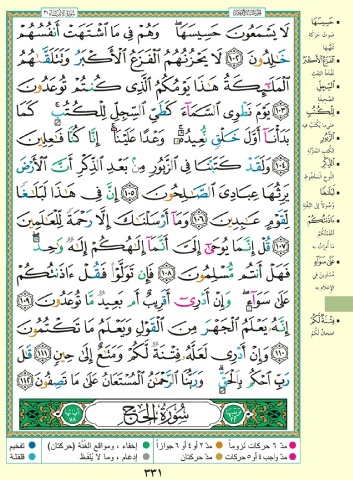 لَا يَسْمَعُونَ حَسِيسَهَا ۖ وَهُمْ فِي مَا اشْتَهَتْ أَنفُسُهُمْ
خَالِدُونَ ١٠٢ لَا يَحْزُنُهُمُ الْفَزَعُ الْأَكْبَرُ وَتَتَلَقَّاهُمُ
الْمَلَائِكَةُ هَٰذَا يَوْمُكُمُ الَّذِي كُنتُمْ تُوعَدُونَ
١٠٣ يَوْمَ نَطْوِي السَّمَاءَ كَطَيِّ السِّجِلِّ لِلْكُتُبِ ۚ كَمَا
بَدَأْنَا أَوَّلَ خَلْقٍ نُّعِيدُهُ ۚ وَعْدًا عَلَيْنَا ۚ إِنَّا كُنَّا فَاعِلِينَ
١٠٤ وَلَقَدْ كَتَبْنَا فِي الزَّبُورِ مِن بَعْدِ الذِّكْرِ أَنَّ الْأَرْضَ
يَرِثُهَا عِبَادِيَ الصَّالِحُونَ ١٠٥ إِنَّ فِي هَٰذَا لَبَلَاغًا
لِّقَوْمٍ عَابِدِينَ ١٠٦ وَمَا أَرْسَلْنَاكَ إِلَّا رَحْمَةً لِّلْعَالَمِينَ
١٠٧ قُلْ إِنَّمَا يُوحَىٰ إِلَيَّ أَنَّمَا إِلَٰهُكُمْ إِلَٰهٌ وَاحِدٌ ۖ
فَهَلْ أَنتُم مُّسْلِمُونَ ١٠٨ فَإِن تَوَلَّوْا فَقُلْ آذَنتُكُمْ
عَلَىٰ سَوَاءٍ ۖ وَإِنْ أَدْرِي أَقَرِيبٌ أَم بَعِيدٌ مَّا تُوعَدُونَ ١٠٩
إِنَّهُ يَعْلَمُ الْجَهْرَ مِنَ الْقَوْلِ وَيَعْلَمُ مَا تَكْتُمُونَ
١١٠ وَإِنْ أَدْرِي لَعَلَّهُ فِتْنَةٌ لَّكُمْ وَمَتَاعٌ إِلَىٰ حِينٍ ١١١ قَالَ
رَبِّ احْكُم بِالْحَقِّ ۗ وَرَبُّنَا الرَّحْمَٰنُ الْمُسْتَعَانُ عَلَىٰ مَا تَصِفُونَ ١١٢
سُورَةُ الْحَجِّ
حَسِيسَهَا
الْفَزَعُ الْأَكْبَرُ
السِّجِلِّ
لِلْكُتُبِ
الزَّبُورِ
الذِّكْرِ
لَبَلَاغًا
آذَنتُكُمْ
عَلَىٰ سَوَاءٍ
فِتْنَةٌ لَّكُمْ
مدّ ٦ حركات لزوماً مدّ ٢ أو ٤ أو ٦ جوازاً إخفاء، ومواقع الغُنَّة (حركتان) تفخيم
مدّ واجب ٤ أو ٥ حركات مدّ حركتان إدغام، وما لا يُلفَظ قلقلة
٣٣١